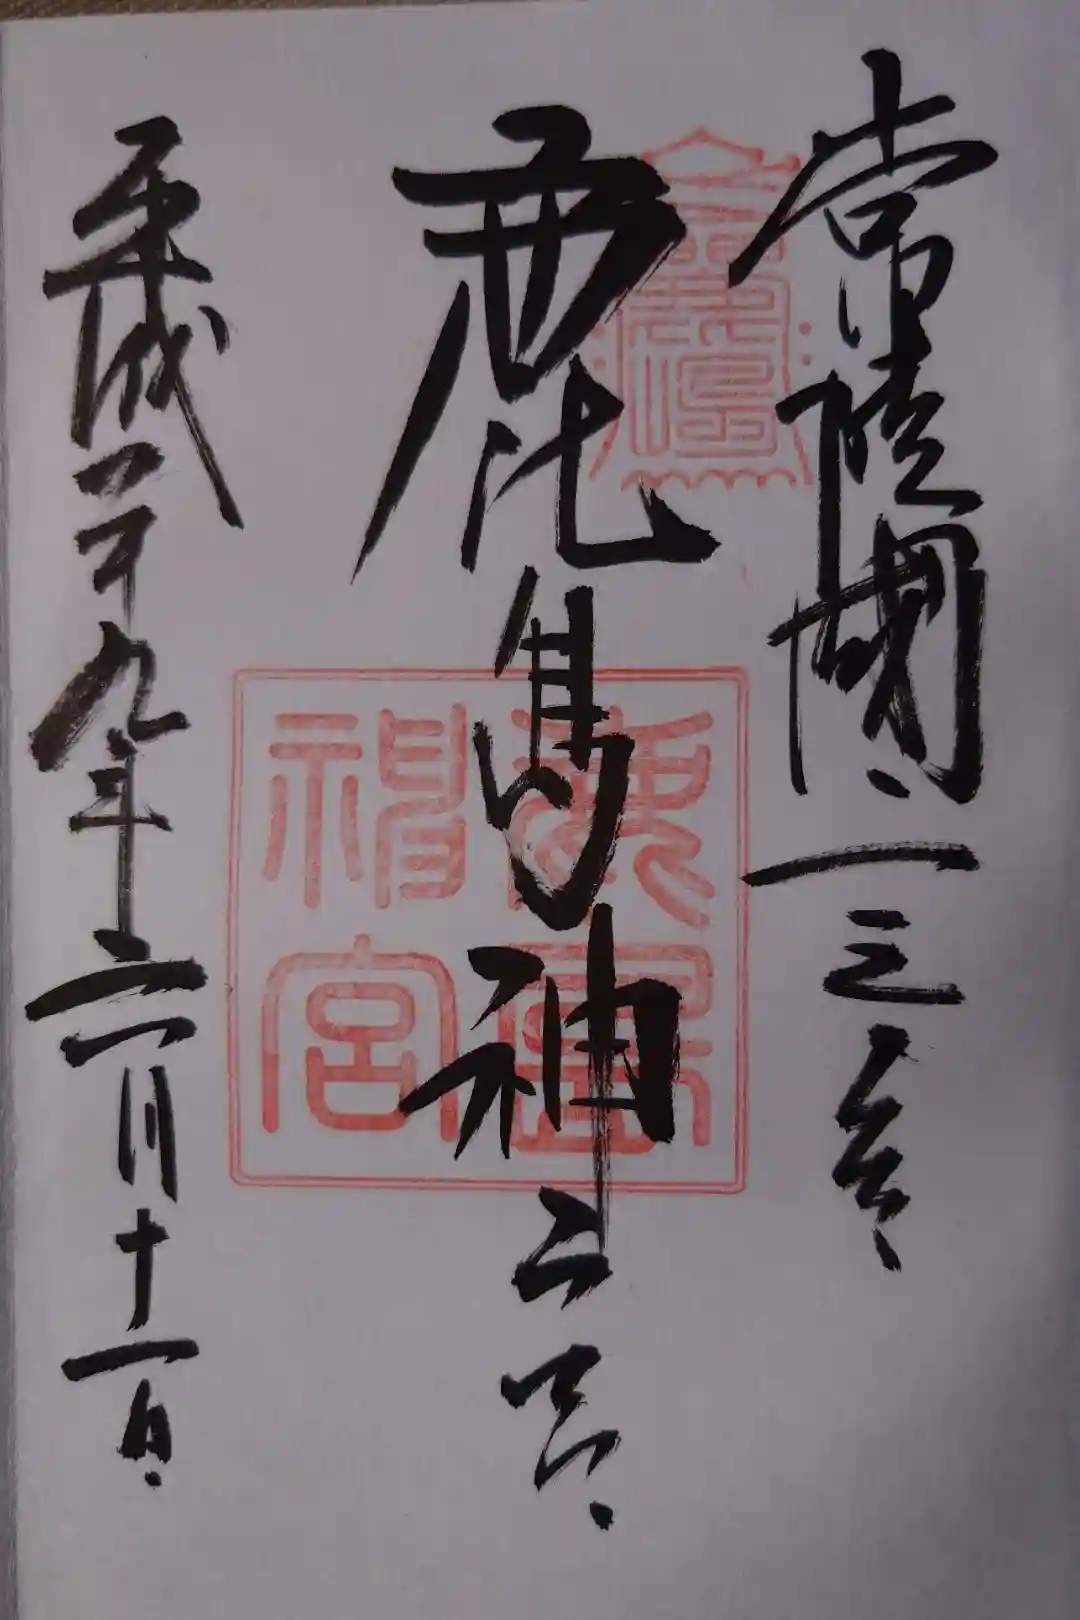 常陸國一之宮
鹿島神宮
平成二十九年二月十一日
鹿島神宮